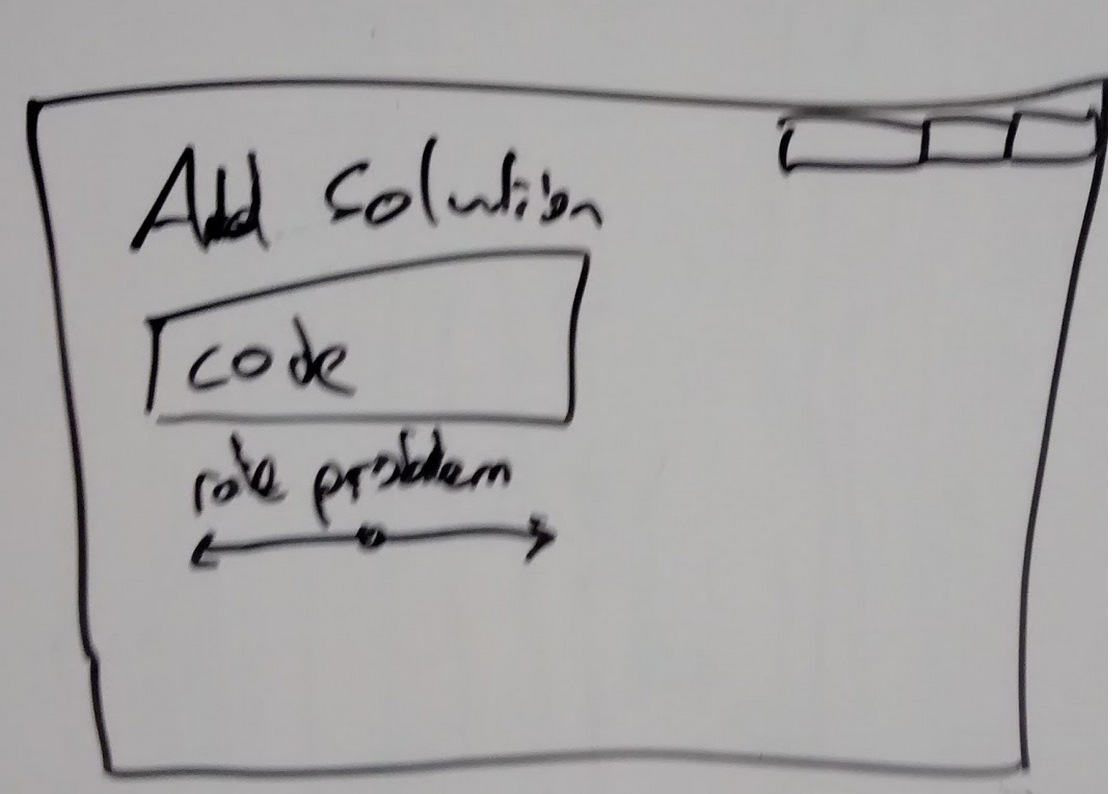 Add Solution
code
rate problem